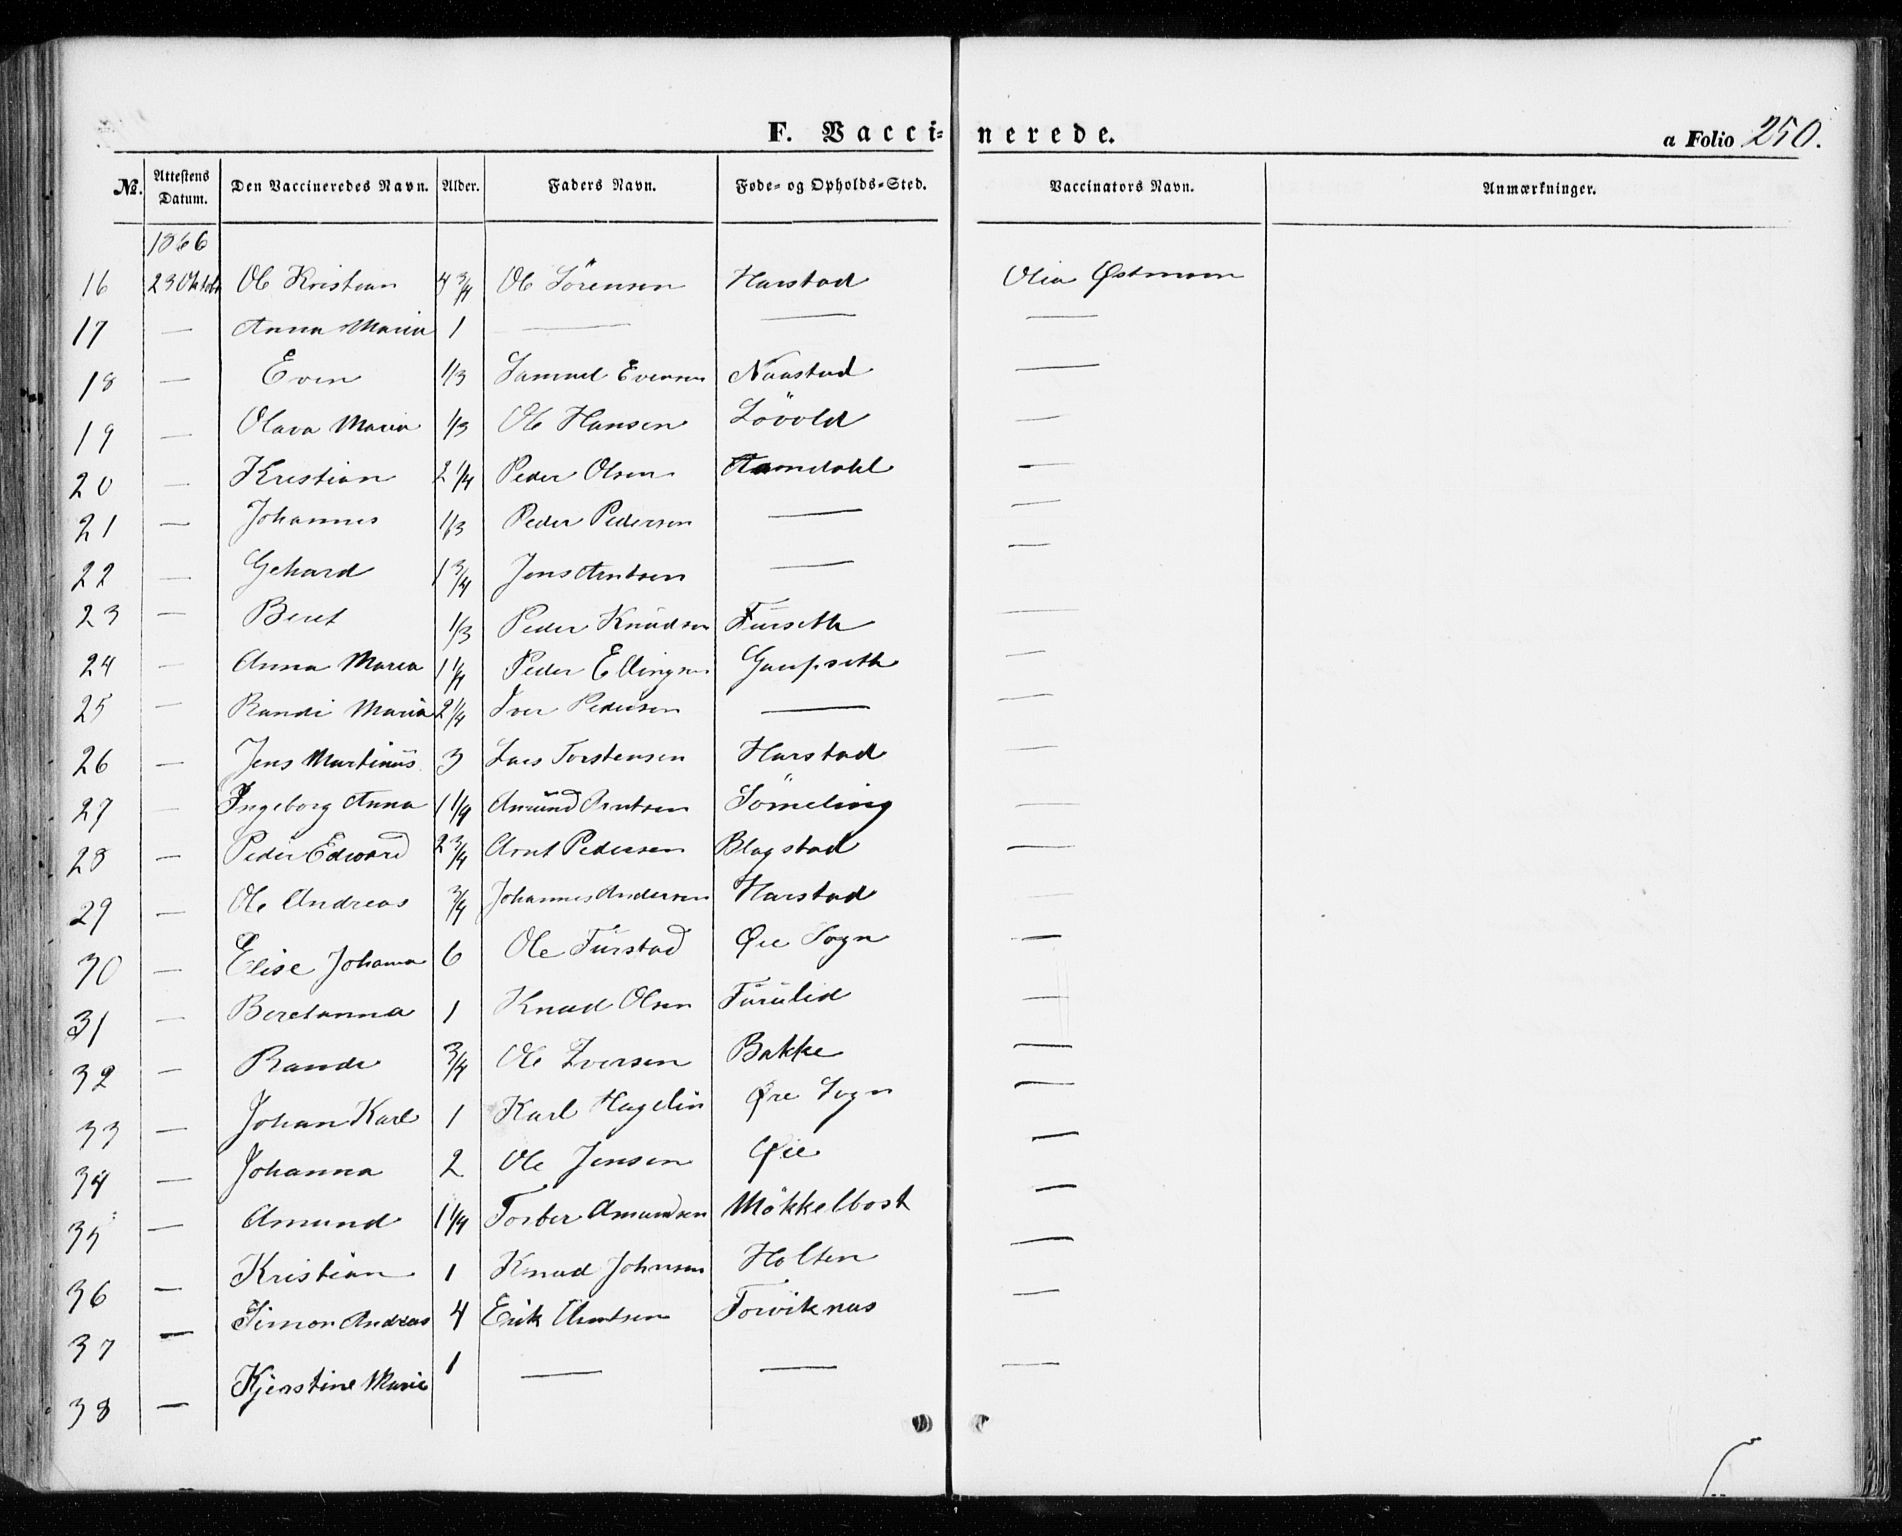 F. Vaccinerede. a Folio 250.
No. Attestens Datum. Den Vaccineredes Navn. Alder. Faders Navn. Føde- og Opholds-Sted. Vaccinators Navn. Anmærkninger.
1866
16 23 Oktobr Ole Kristian 4 3/4 Ole Sörensen Harstad Olia Østmoen
17 — Anna Maria 1 — — —
18 — Even 1/3 Samuel Evensen Naastad —
19 — Olava Maria 1/3 Ole Hansen Lövold —
20 — Kristian 2 1/4 Peder Olsen —
21 — Johannes 1/3 Peder Pedersen — —
22 — Gehard 1 3/4 Jens Arntsen — —
23 — Beret 1/3 Peder Knudsen Furseth —
24 — Anna Maria 1 1/4 Peder Ellingsen Gaupseth —
25 — Randi Maria 2 1/4 Iver Pedersen — —
26 — Jens Martinus 3 Lars Torstensen Harstad —
27 — Ingeborg Anna 1 1/4 Amund Arntsen Sömeling —
28 — Peder Edward 2 3/4 Arnt Pedersen Blagstad —
29 — Ole Andreas 3/4 Johannes Andersen Harstad —
30 — Elise Johanna 6 Ole Furstad Øre Sogn —
31 — Beretanna 1 Knud Olsen Furulid —
32 — Randi 3/4 Ole Iversen Bakke —
33 — Johan Karl 1 Karl Hagelin Øre Sogn —
34 — Johanna 2 Ole Jensen Øie —
35 — Amund 1 1/4 Torber Amundsen Mökkelbost —
36 — Kristian 1 Knud Johnsen Holten —
37 — Simon Andreas 4 Erik Arntsen Torviknæs —
38 — Kjerstine Marie 1 — — —